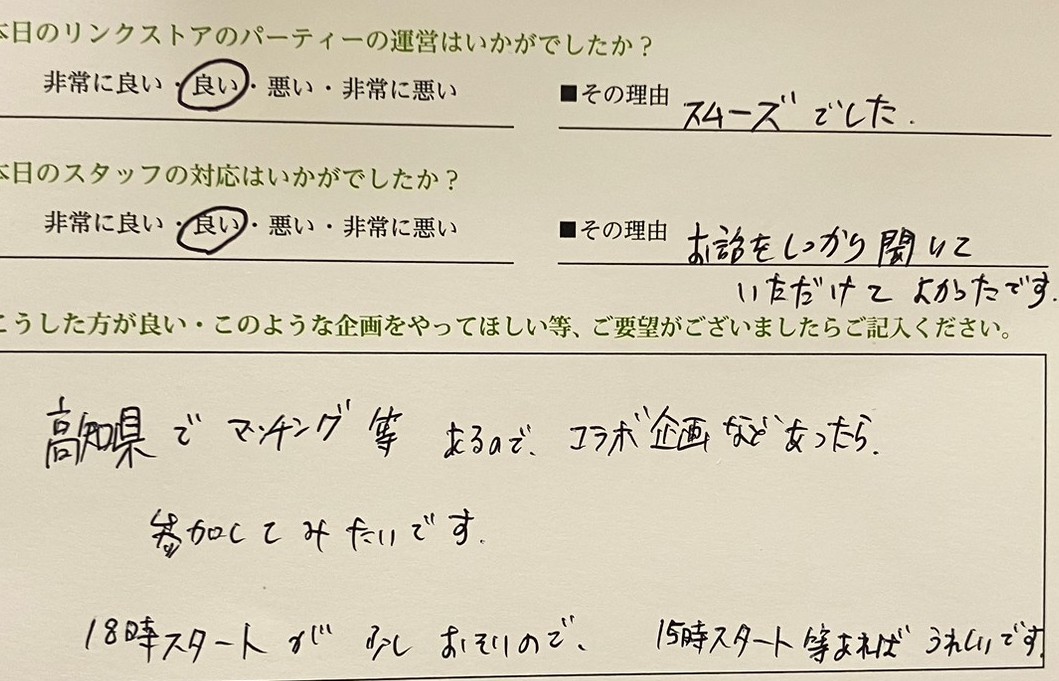 本日のリンクストアのパーティーの運営はいかがでしたか？
非常に良い・良い・悪い・非常に悪い
■その理由 スムーズでした.
本日のスタッフの対応はいかがでしたか？
非常に良い・良い・悪い・非常に悪い
■その理由 お話をしっかり聞いて
いただけてよかったです.
こうした方が良い・このような企画をやってほしい等、ご要望がございましたらご記入ください。
高知県でマッチング等あるので、コラボ企画などあったら.
参加してみたいです.
18時スタートが少しおそいので、15時スタート等あればうれしいです.